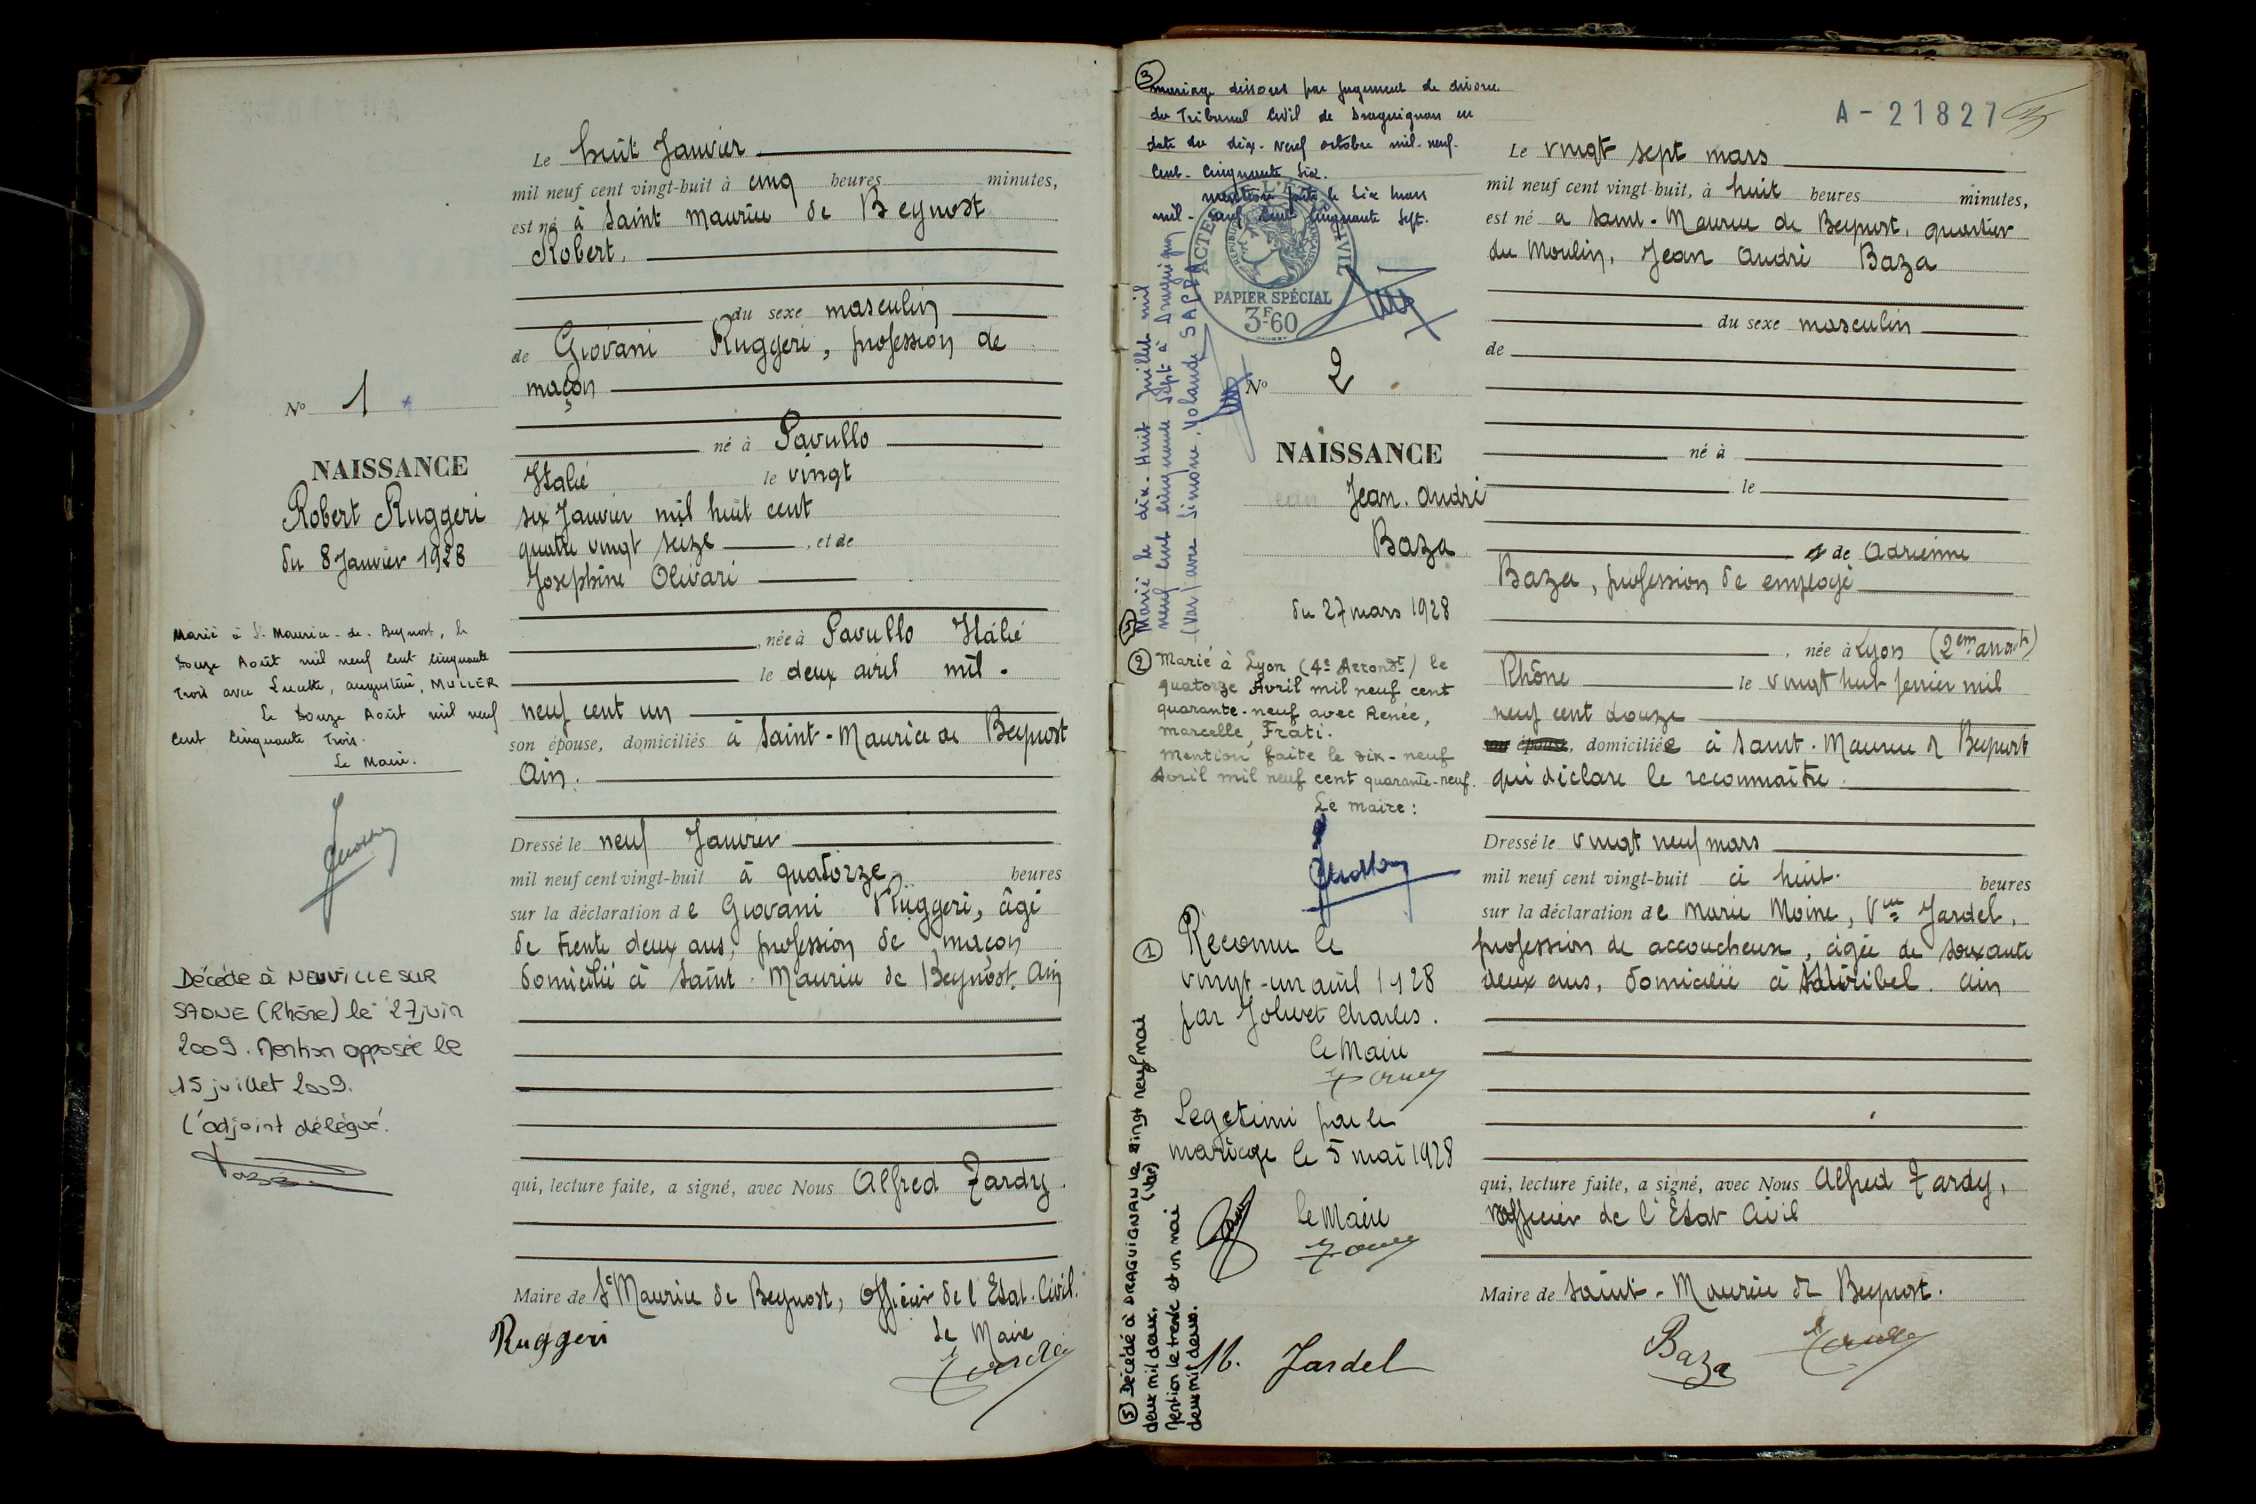 Le huit Janvier
mil neuf cent vingt-huit à cinq heures minutes,
est né à Saint Maurice de Beynost
Robert,
du sexe masculin
de Giovani Ruggeri, profession de
maçon
né à Pavullo
Italie le vingt
six Janvier mil huit cent
quatre vingt seize, et de
Josephine Olivari
, née à Pavullo Italie
le deux avril mil
neuf cent un
son épouse, domiciliés à Saint-Maurice de Beynost
Ain.
Dressé le neuf Janvier
mil neuf cent vingt-huit à quatorze heures
sur la déclaration de Giovani Ruggeri, âgé
de trente deux ans, profession de maçon
domicilié à Saint-Maurice de Beynost, Ain
qui, lecture faite, a signé, avec Nous Alfred Tardy.
Maire de St Maurice de Beynost, Officier de l'Etat-Civil.
Ruggeri
Le Maire
No 1
NAISSANCE
Robert Ruggeri
du 8 Janvier 1928
Marié à St Maurice-de-Beynost, le
douze Août mil neuf cent cinquante
trois avec Lucette, augustine, MULLER
Le douze Août mil neuf
cent cinquante trois.
Le Maire.
Décédé à NEUVILLE SUR
SAONE (Rhône) le 27 juin
2009. Mention apposée le
15 juillet 2009.
L'adjoint délégué.
A-21827
③
mariage dissous par jugement de divorce
du Tribunal Civil de Draguignan en
date du dix-neuf octobre mil-neuf-
cent-cinquante six.
mention faite le six mars
mil-neuf cent cinquante sept.
ACTES DE L'ETAT CIVIL
REPUBLIQUE FRANÇAISE
PAPIER SPÉCIAL
3F60
Marié le dix-huit Juillet mil
neuf cent cinquante sept à Draguignan
(Var) avec Simone, Yolande SACCA
No 2
NAISSANCE
Jean. André
Baza
du 27 mars 1928
② Marié à Lyon (4e Arrondt) le
quatorze Avril mil neuf cent
quarante-neuf avec Renée,
marcelle, Frati.
Mention faite le dix-neuf
Avril mil neuf cent quarante-neuf.
Le maire:
① Reconnu le
vingt-un avril 1928
par Jolivet Charles.
Le Maire
Legetimé par le
mariage le 5 mai 1928
le Maire
⑤ Décédé à DRAGUIGNAN le vingt neuf mai
deux mil deux. (Var)
Mention le trente et un mai
deux mil deux.
M. Jardel
Le vingt sept mars
mil neuf cent vingt-huit, à huit heures minutes,
est né a Saint-Maurice de Beynost, quartier
du Moulin, Jean André Baza
du sexe masculin
de
né à
le
de Adrienne
Baza, profession de employé
, née à Lyon (2em arrondt)
Rhône le vingt huit fevrier mil
neuf cent douze
son épouse, domiciliée à Saint-Maurice de Beynost
qui déclare le reconnaître.
Dressé le vingt neuf mars
mil neuf cent vingt-huit à huit heures
sur la déclaration de Marie Moine, Vve Jardel,
profession de accoucheuse, âgée de soixante
deux ans, domiciliée à Miribel. Ain
qui, lecture faite, a signé, avec Nous Alfred Tardy,
officier de l'Etat Civil
Maire de Saint-Maurice de Beynost.
Baza